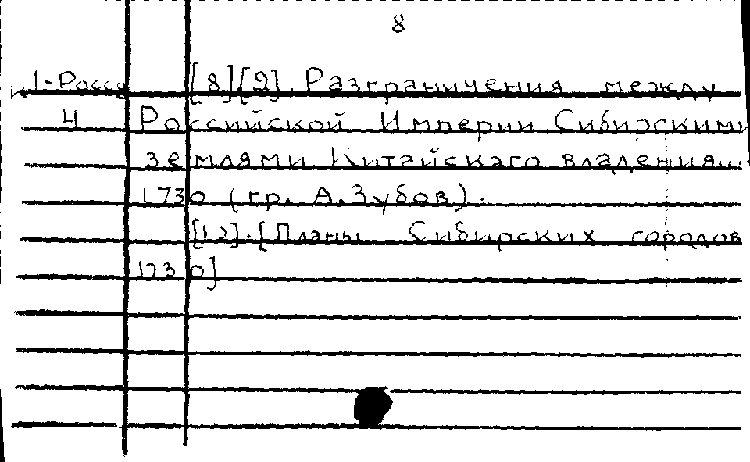 8
1-Росс [8][9]. Разграничения между
4 Российской Империи Сибирскими
землями Китайского владения...
1730 (гр. А. Зубов).
[12]. [Планы Сибирских городов
1730]